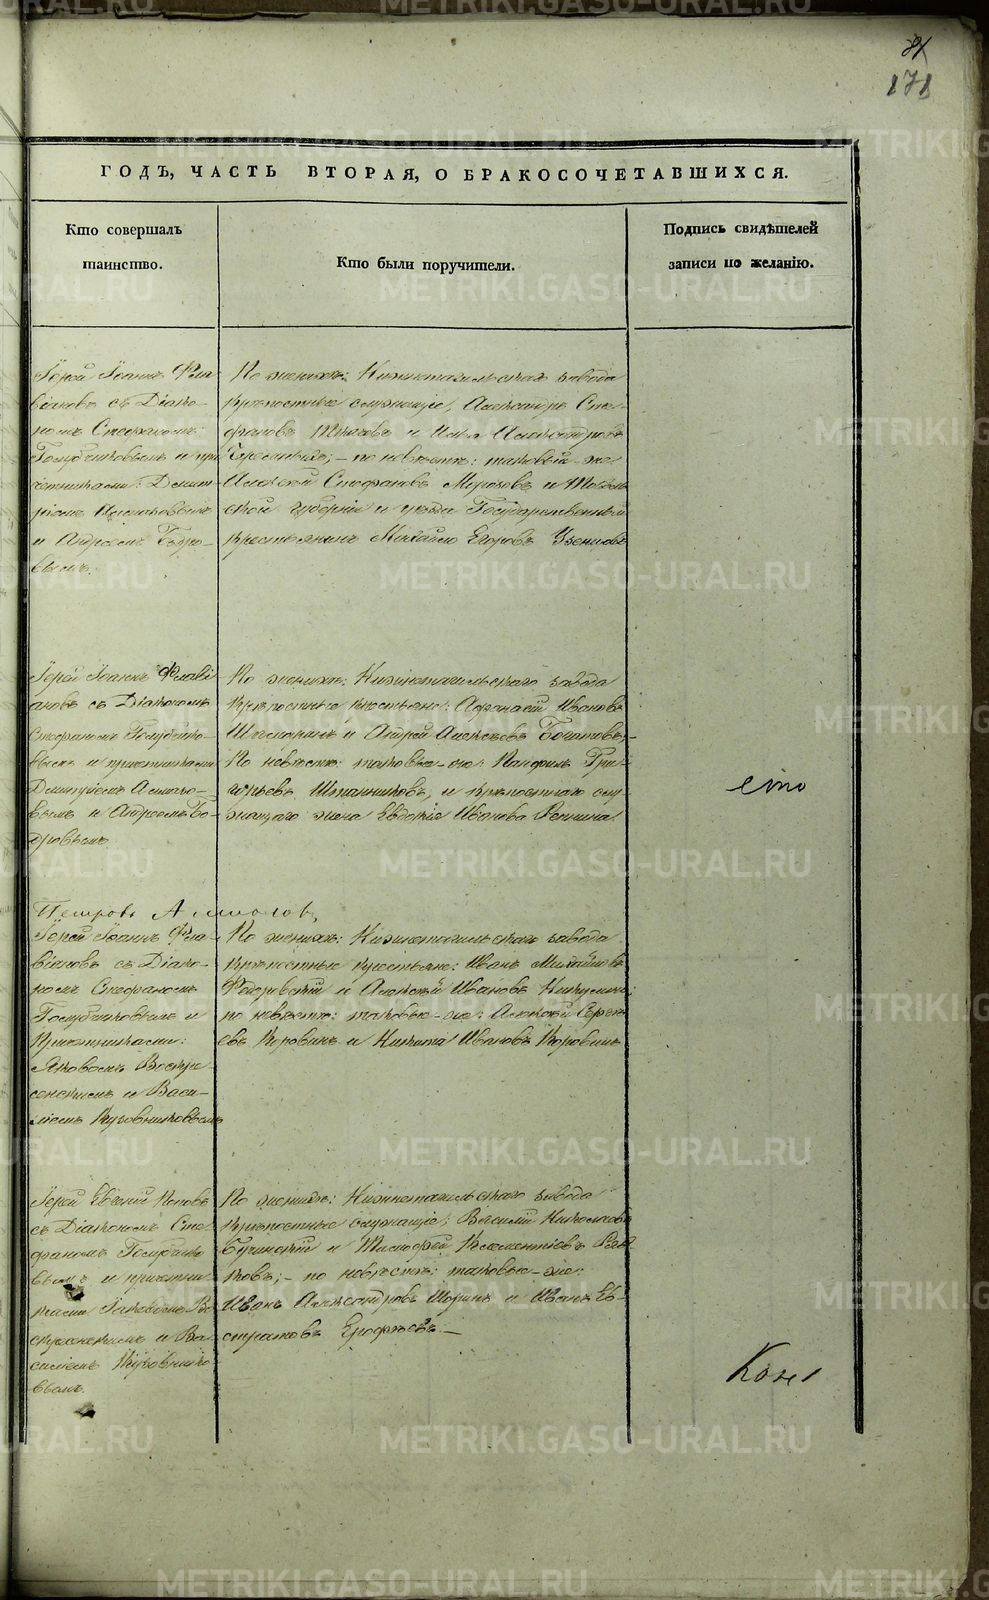 171
ГОДЪ, ЧАСТЬ ВТОРАЯ, О БРАКОСОЧЕТАВШИХСЯ.
Кто совершалъ
таинство.
Кто были поручители.
Подпись свидѣтелей
записи по желанію.
Іерей Іоаннъ Фла-
віановъ съ Діако-
номъ Стефаномъ
Голубчиковымъ и при
четниками: Димит-
ріемъ
и Андреемъ Бодро-
вымъ.
По женихѣ: Нижнетагильскаго завода
крѣпостные служащіе, Александръ Сте-
фановъ и Илья Александровъ
по невѣстѣ: таковый-же
Алексѣй Стефановъ Морозовъ и Москов-
ской губерніи и уѣзда Государственный
крестьянинъ Михайло Егоровъ
Іерей Іоаннъ Флаві
ановъ съ Діакономъ
Стефаномъ Голубчико-
вымъ и причетниками
Димитріемъ
вымъ и Андреемъ Бо-
дровымъ
По женихѣ: Нижнетагильскаго завода
крѣпостные крестьяне: Афанасій Ивановъ
и Андрей Алексѣевъ Богатовъ,-
По невѣстѣ: таковые-же: Панфилъ Гри-
горьевъ и крѣпостнаго слу-
жащаго жена Евдокія Иванова Репина
ето
Петровъ
Іерей Іоаннъ Фла-
віановъ съ Діако-
номъ Стефаномъ
Голубчиковымъ и
Причетниками:
Яковомъ Воскре-
сенскимъ и Васи-
ліемъ Кузовниковымъ
По женихѣ: Нижнетагильскаго завода
крѣпостные крестьяне: Иванъ Михайловъ
Федоровскій и Алексѣй Ивановъ Никулинъ;
по невѣстѣ: таковые-же: Алексѣй Сергѣ-
евъ Коровинъ и Никита Ивановъ Коровинъ
Іерей Евгеній Поповъ
съ Діакономъ Сте-
фаномъ Голубчико
вымъ и причетни-
ками Яковомъ Во
скресенскимъ и Ва-
силіемъ Кузовнико-
вымъ.
По женихѣ: Нижнетагильскаго завода
крѣпостные служащіе: Василій Николаевъ
и Тимофей Клементіевъ
ковъ;- по невѣстѣ: таковые-же:
Иванъ Александровъ Шоринъ и Иванъ Ев-
стратовъ Ерофѣевъ.-
METRIKI.GASO-URAL.RU